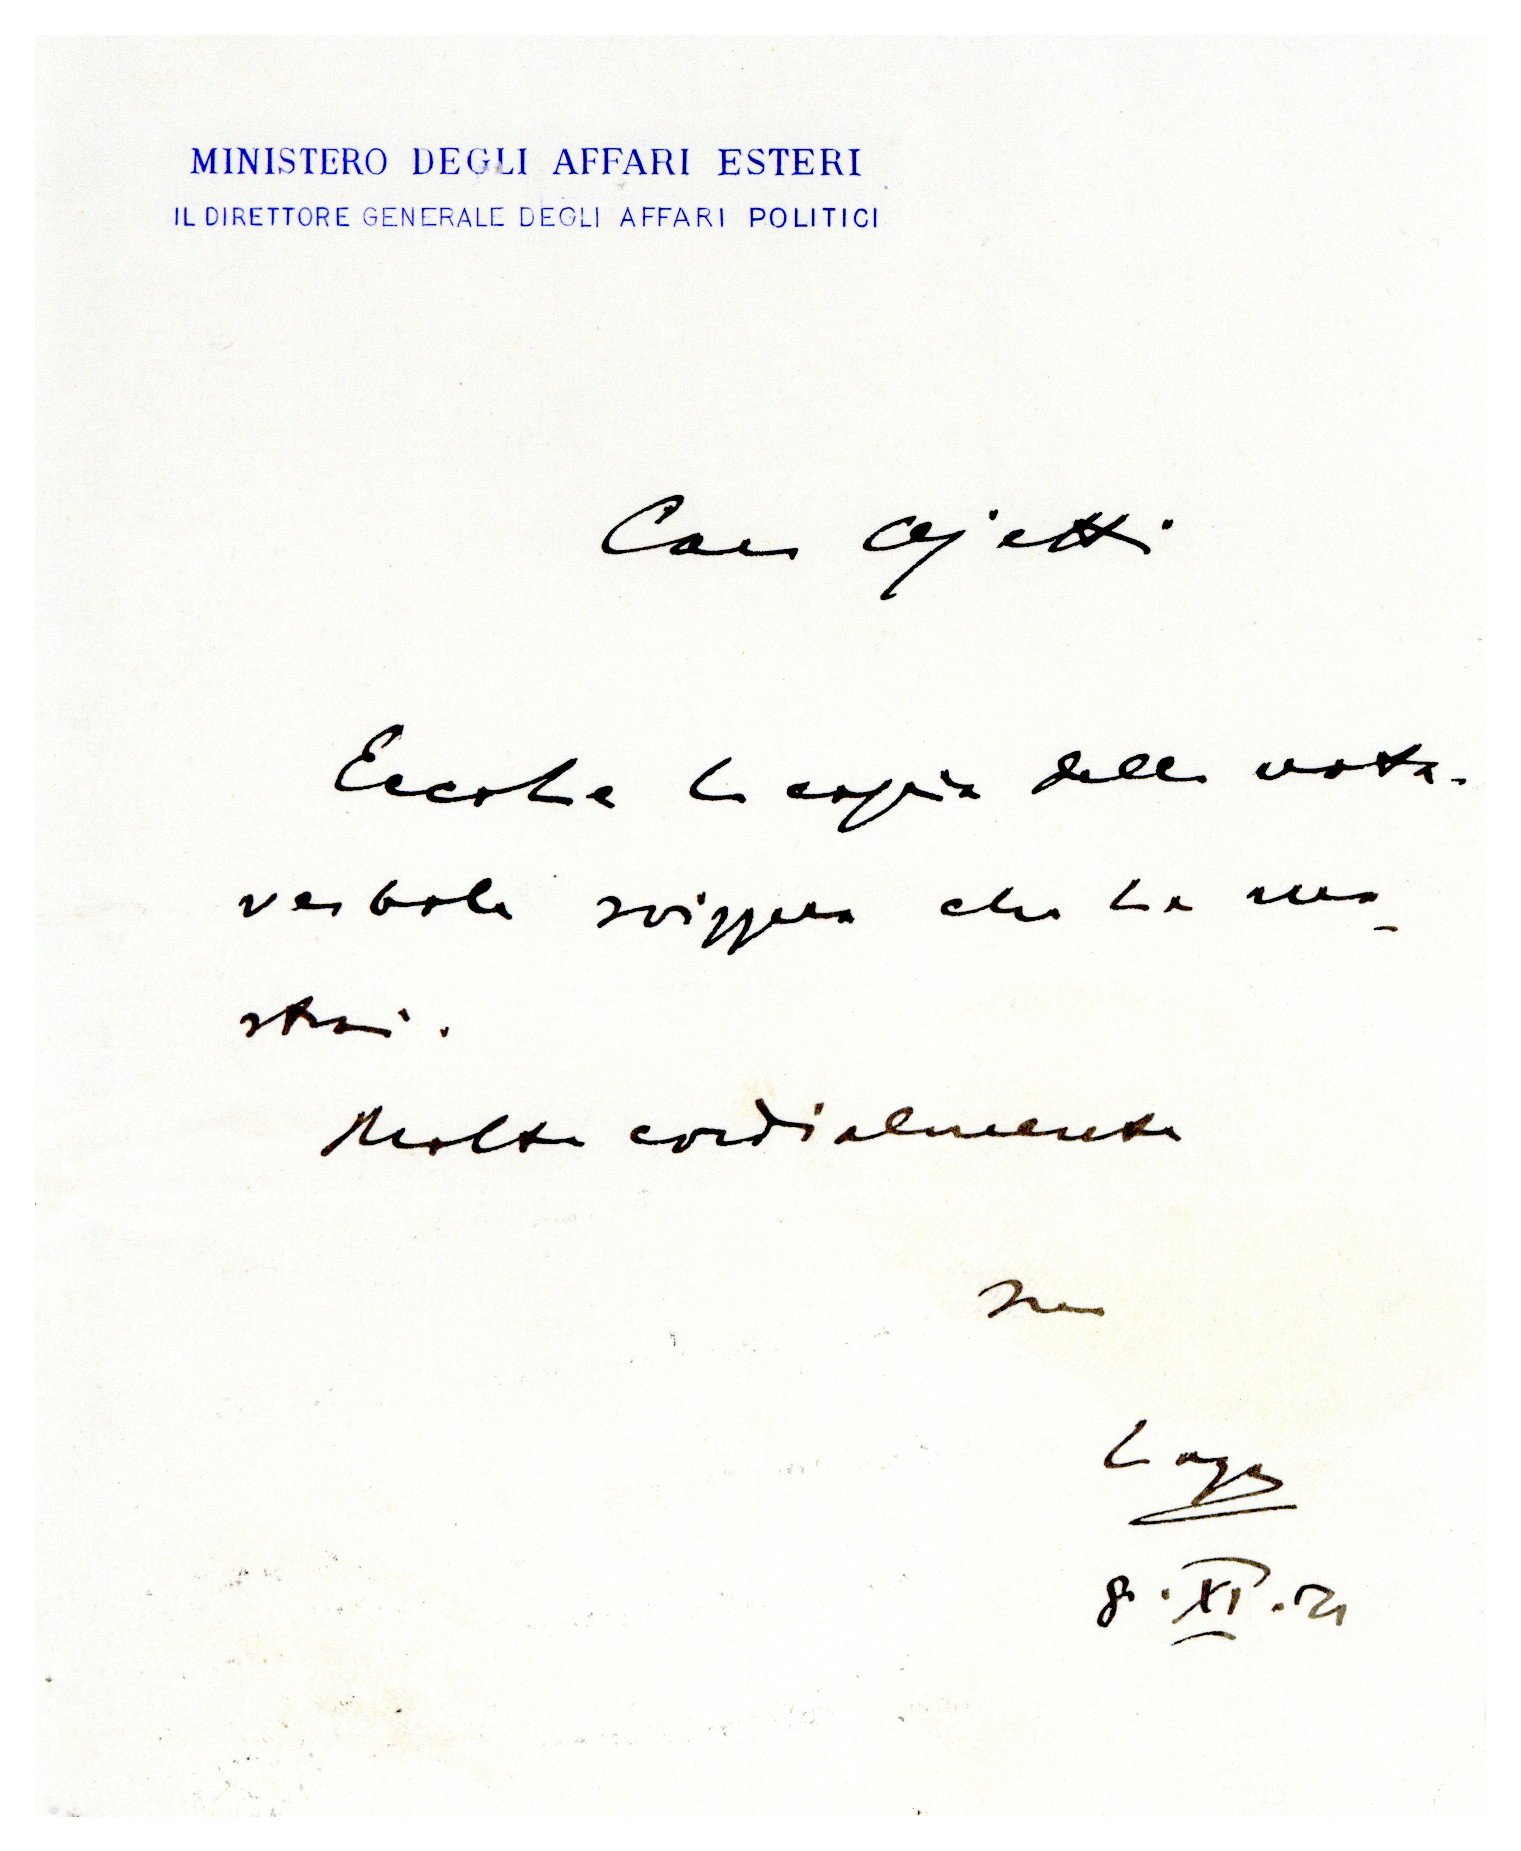 MINISTERO DEGLI AFFARI ESTERI
IL DIRETTORE GENERALE DEGLI AFFARI POLITICI
Caro Ojetti
Eccole la copia della nota-
verbale svizzera che Le mo-
strai.
Molto cordialmente
Suo
8.XI.